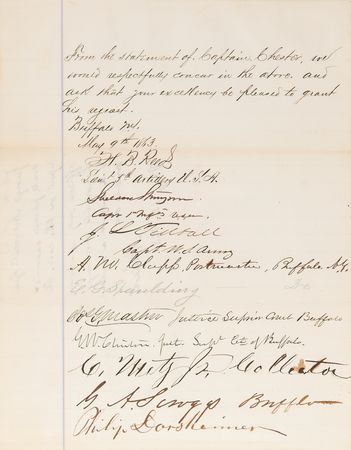 From the statement of Captain Chester, we
would respectfully concur in the above. and
ask that your excellency be pleased to grant
his request.
Buffalo N.Y.
May 9th 1863
H. B.
Lieut 3d artillery U.S.A.
Capt
J. L. Tidball
Capt. U.S. Army
A. M. Clapp, Postmaster, Buffalo N.Y.
E. G. Spaulding Do
Justice Superior Court Buffalo
G. W. Clinton Just. Supr. City of Buffalo.
C. Metz Jr, Collector
G. A. Scroggs Buffalo
Philip Dorsheimer